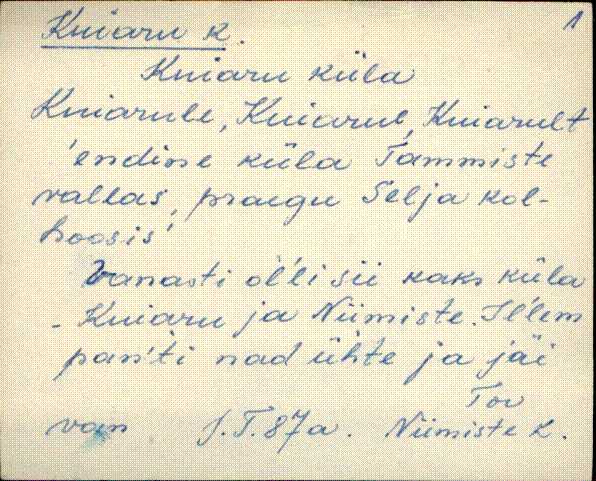 Kuiaru k. 1
Kuiaru küla
Kuiarule, Kuiarul, Kuiarult
'endine küla Tammiste
vallas, praegu Selja kol-
hoosis'
Vanasti ol'li sii kaks küla
- Kuiaru ja Niimiste. Il'lem
pan'ti nad ühte ja jäi
Tor
van J.T. 87a. Niimiste k.